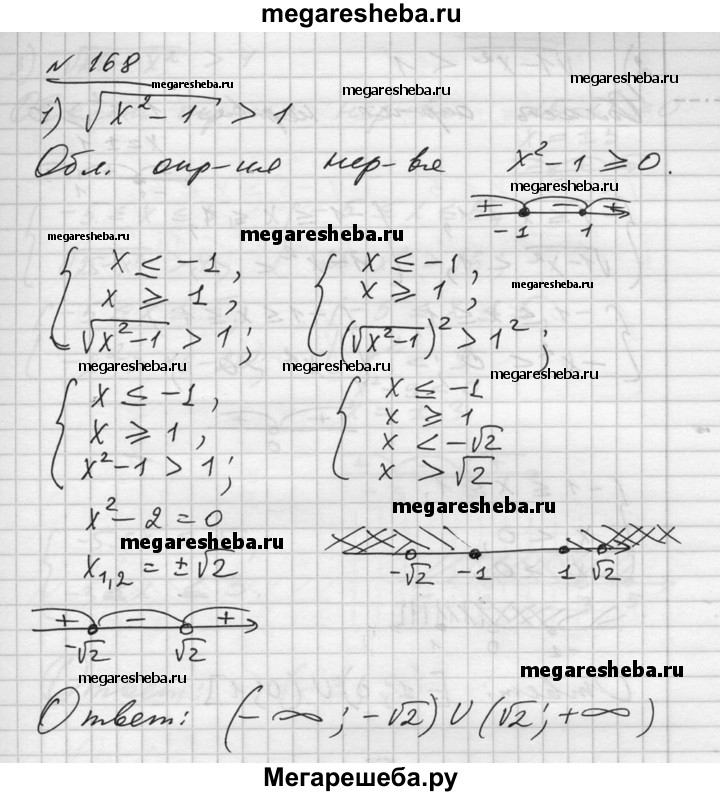 megaresheba.ru
№ 168
megaresheba.ru
megaresheba.ru
megaresheba.ru
1) √(x² - 1) > 1
Обл. опр-ия нер-ва x² - 1 ≥ 0.
megaresheba.ru
+ - +
-1 1
megaresheba.ru
megaresheba.ru
{ x ≤ -1, { x ≤ -1,
x ≥ 1, x ≥ 1,
megaresheba.ru
√(x²-1) > 1; (√(x²-1))² > 1²;
megaresheba.ru megaresheba.ru megaresheba.ru
{ x ≤ -1, { x ≤ -1
x ≥ 1, x ≥ 1
x²-1 > 1; x < -√2
x > √2
megaresheba.ru
x² - 2 = 0
megaresheba.ru
x₁,₂ = ±√2
-√2 -1 1 √2
+ - +
-√2 √2
megaresheba.ru
megaresheba.ru
Ответ: (-∞; -√2) ∪ (√2; +∞)
megaresheba.ru
Мегарешеба.ру